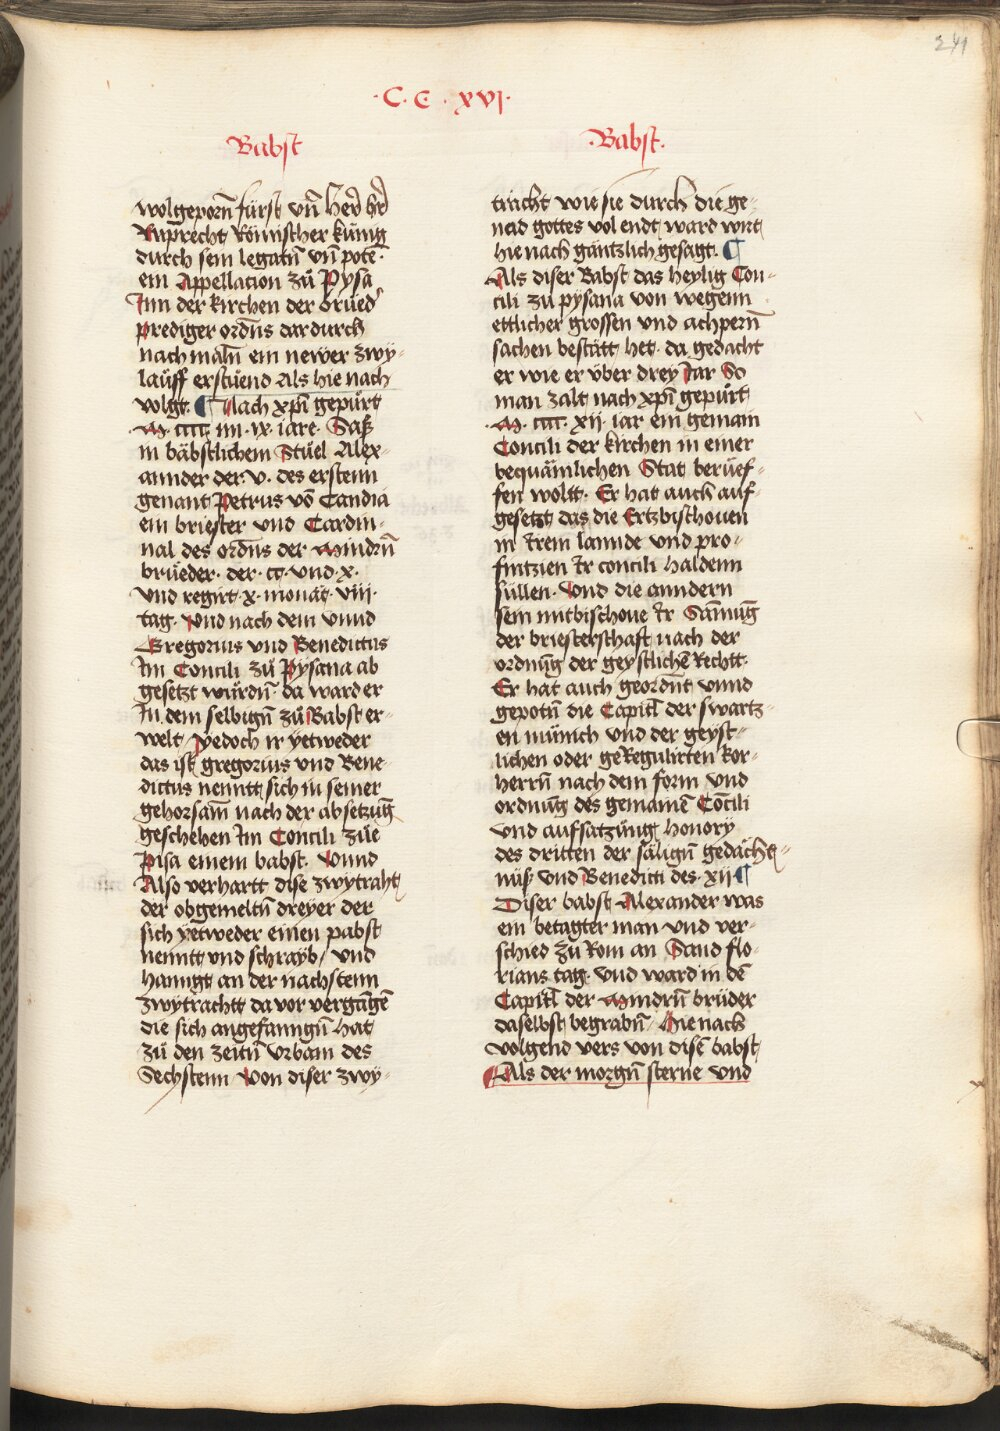 241
·C·C·xvj·
Babst
wolgeporn̄ fürst vn̄ Herr hr̄
Ruprecht Römischer künig
durch sein legatn̄ vn̄ pote·
ein Appellacion zü Pysa
Inn der kirchen der brüed'
prediger ordn̄s dardurch
nach maln̄ ein newer zwÿ-
laüff erstüend Als hie nach
volgt· ¶ Nach xp̄i gepürt
·M· cccc· im· ix· iare· Saß
in bäbstlichem Stüel Alex-
annder der· v· des erstenn
genant Petrus vō Candia
ein briester vnd Cardin-
nal des ordn̄s der Mindrn̄
brüeder· der· cc· vnd· x·
vnd regirt· x· monat· viii·
tag· Vnd nach dem vnnd
Gregorius vnd Benedictus
Im Concili zü Pysana ab
gesetzt würdn̄· da ward er
In dem selbign̄ zü Babst er-
welt / yedoch ir yetweder
das ist gregorius vnd Bene-
dictus nenntt sich in seiner
gehorsam̄ nach der absetzūg
geschehen Im Concili züe
Pisa einem babst· Vnnd
Also verhartt dise zwytraht
der obgemeltn̄ dreyer der
sich yetweder einen pabst
nenntt vnd schrayb / vnd
hanngt an der nachstenn
zwytrachtt da vor vergāgē
die sich angefanngn̄ hat
zü den zeitn̄ Vrbani des
Sechstenn Von diser zwy-
·Babst·
tracht wie sie durch die ge-
nad gottes vol endt ward wirt
hie nach gäntzlich gesagt· ¶
Als diser Babst das heylig Con-
cili zü pysana von wegenn
ettlicher grossen vnd achpern̄
sachen bestätt het· da gedacht
er wie er über drey Jar So
man zalt nach xp̄i gepürt
·M· cccc· xii· iar ein gemain
Concili der kirchen in einer
bequämlichen Stat berüef-
fen woltt· Er hat auch auf-
gesetzt das die Ertzbischouen
in Irem lannde vnd pro-
fintzien Ir concili haldenn
süllen· Vnd die anndern
sein mitbischoue Ir Sam̄ūg
der briesterschafft nach der
ordnūg der geystlichē Rechtt·
Er hat auch geordn̄t vnnd
gepotn̄ die Capitl der swartz-
en münich vnd der geyst-
lichen oder geRegulirten kor-
herrn̄ nach dem form vnd
ordnūg des gemainē Cōcili
vnd aufsatzūng honorÿ
des dritten der sälign̄ gedächt-
nüß vnd Benedicti des· xii ¶
Diser babst Alexander was
ein betagter man vnd ver-
schied zü Rom an Sand flo-
rians tag· vnd ward in dē
Capitl der Mindrn̄ brüder
daselbst begrabn̄ / Hie nach
volgend vers von disē babst
Als der morgn̄ sterne vnd